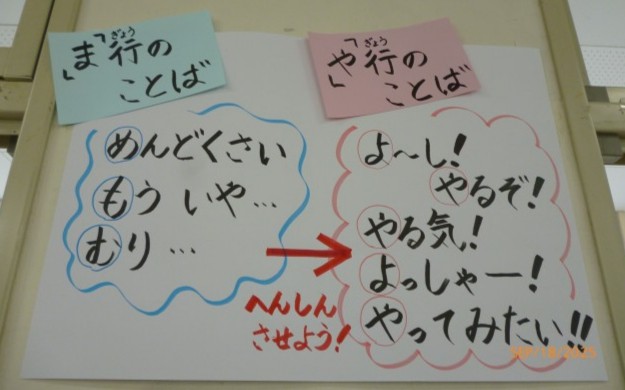 「ま」行の
ことば
めんどくさい
もういや…
むり…
へんしん
させよう！
「や」行の
ことば
よ〜し！
やるぞ！
やる気！
よっしゃー！
やってみたい!!